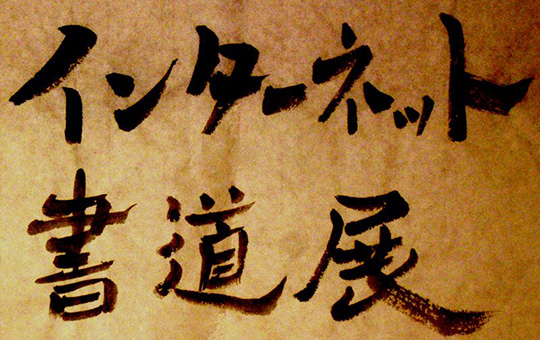 インターネット
書道展